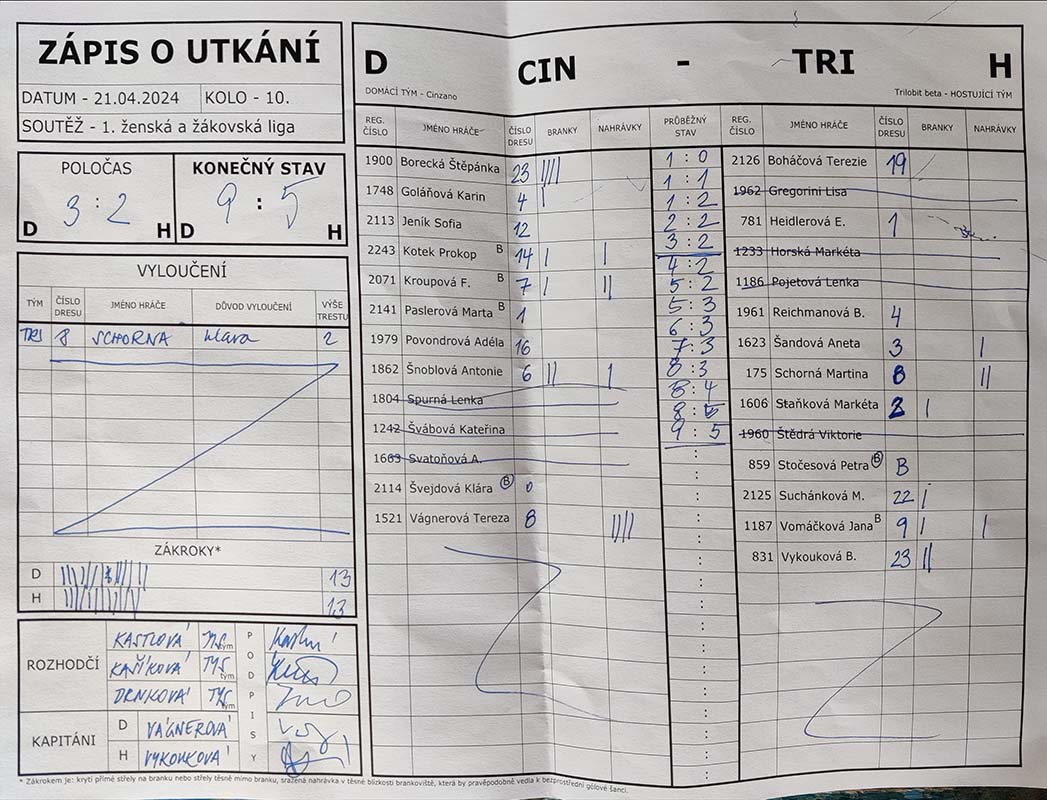 ZÁPIS O UTKÁNÍ
DATUM - 21.04.2024 KOLO - 10.
SOUTĚŽ - 1. ženská a žákovská liga
POLOČAS KONEČNÝ STAV
3 : 2 9 : 5
D H D H
VYLOUČENÍ
TÝM ČÍSLO DRESU JMÉNO HRÁČE DŮVOD VYLOUČENÍ VÝŠE TRESTU
TRI 8 SCHORNA hlava 2
ZÁKROKY*
D 13
H 13
ROZHODČÍ
KASTLOVÁ tým
KAŇKOVÁ TYS tým
DRNKOVÁ TYS tým
PODPISY
KAPITÁNI
D VÁGNEROVÁ
H VYKOUKOVÁ
D CIN - TRI H
DOMÁCÍ TÝM - Cinzano Trilobit beta - HOSTUJÍCÍ TÝM
REG. ČÍSLO JMÉNO HRÁČE ČÍSLO DRESU BRANKY NAHRÁVKY PRŮBĚŽNÝ STAV REG. ČÍSLO JMÉNO HRÁČE ČÍSLO DRESU BRANKY NAHRÁVKY
1900 Borecká Štěpánka 23 ||||
1748 Goláňová Karin 4 |
2113 Jeník Sofia 12
2243 Kotek Prokop B 14 | |
2071 Kroupová F. B 7 | ||
2141 Paslerová Marta B 1
1979 Povondrová Adéla 16
1862 Šnoblová Antonie 6 || |
1804 Spurná Lenka
1242 Švábová Kateřina
1663 Svatoňová A.
2114 Švejdová Klára B 0
1521 Vágnerová Tereza 8 ||||
1 : 0
1 : 1
1 : 2
2 : 2
3 : 2
4 : 2
5 : 2
5 : 3
6 : 3
7 : 3
8 : 3
8 : 4
8 : 5
9 : 5
2126 Boháčová Terezie 19
1962 Gregorini Lisa
781 Heidlerová E. 1
1233 Horská Markéta
1186 Pojetová Lenka
1961 Reichmanová B. 4
1623 Šandová Aneta 3 |
175 Schorná Martina 8 ||
1606 Staňková Markéta 2 |
1960 Štědrá Viktorie
859 Stočesová Petra B B
2125 Suchánková M. 22 |
1187 Vomáčková Jana B 9 | |
831 Vykouková B. 23 ||
* Zákrokem je: krytí přímé střely na branku nebo střely těsně mimo branku, sražená nahrávka v těsné blízkosti brankoviště, která by pravěpodobně vedla k bezprostřední gólové šanci.